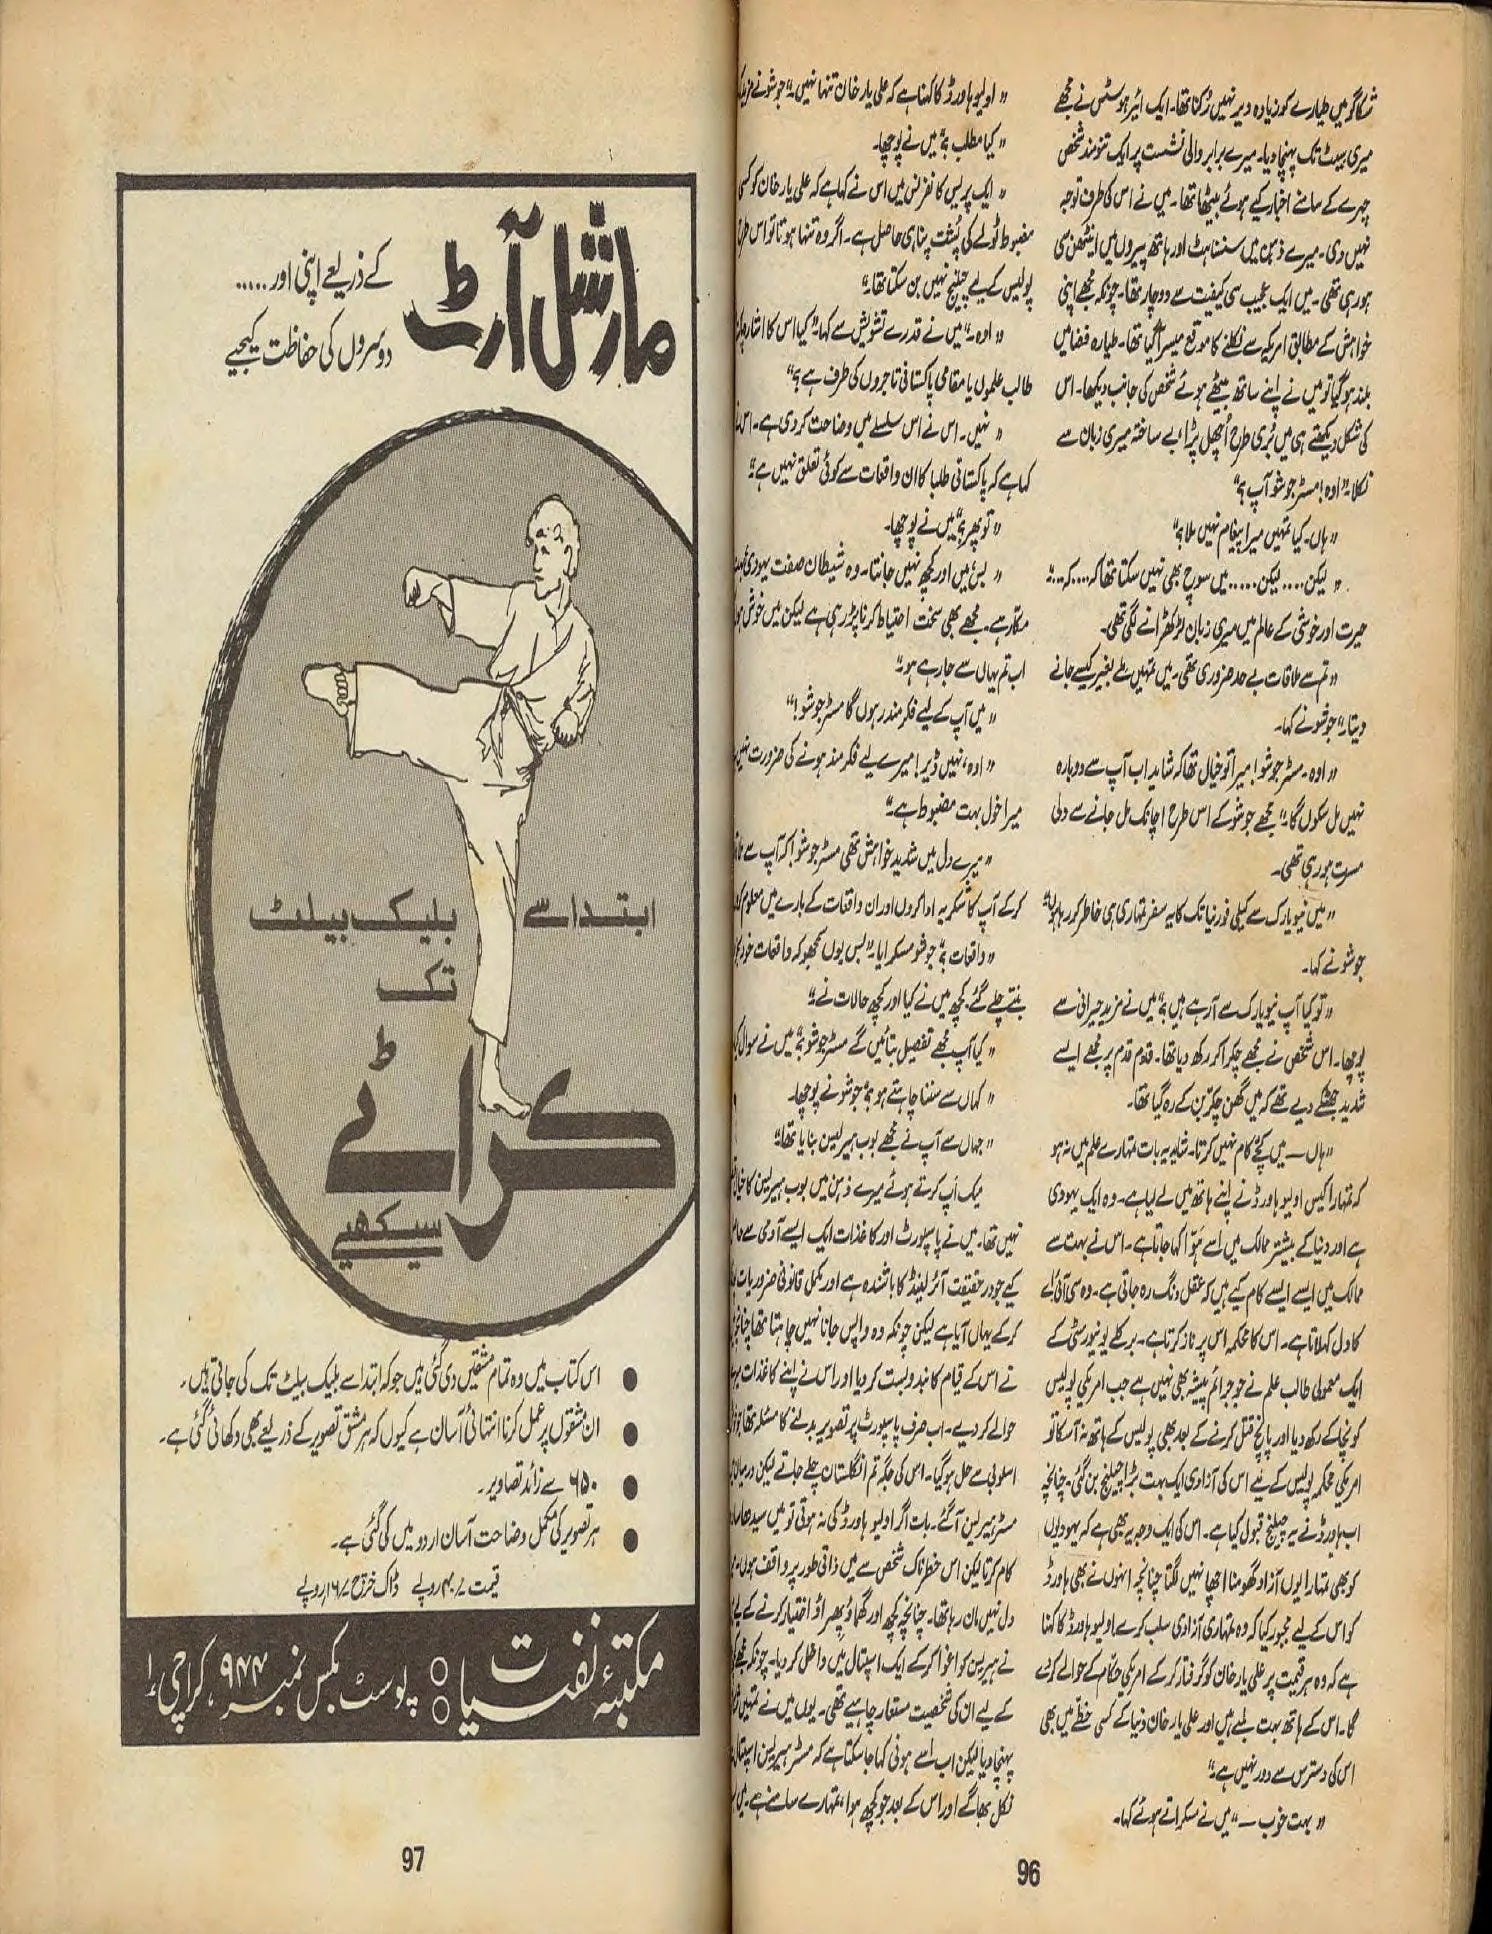 شکاگو میں طیارے کو زیادہ دیر نہیں رُکنا تھا۔ ایک ائیر ہوسٹس نے مجھے
میری سیٹ تک پہنچا دیا۔ میرے برابر والی نشست پر ایک تنومند شخص
چہرے کے سامنے اخبار کیے ہوئے بیٹھا تھا۔ میں نے اس کی طرف توجہ
نہیں دی۔ میرے ذہن میں سنسناہٹ اور ہاتھ پیروں میں اینٹھن سی
ہو رہی تھی۔ میں ایک عجیب سی کیفیت سے دوچار تھا۔ چونکہ مجھے اپنی
خواہش کے مطابق امریکہ سے نکلنے کا موقع میسر آگیا تھا۔ طیارہ فضا میں
بلند ہوگیا تو میں نے اپنے ساتھ بیٹھے ہوئے شخص کی جانب دیکھا۔ اس
کی شکل دیکھتے ہی میں بُری طرح اُچھل پڑا، بے ساختہ میری زبان سے
نکلا۔ "اوہ! مسٹر جوشو آپ؟"
"ہاں۔ کیا تمہیں میرا پیغام نہیں ملا؟"
"لیکن.... لیکن..... میں سوچ بھی نہیں سکتا تھا کہ.... کہ...."
حیرت اور خوشی کے عالم میں میری زبان لڑکھڑانے لگی تھی۔
"تم سے ملاقات بے حد ضروری تھی۔ میں تمہیں ملے بغیر کیسے جانے
دیتا۔" جوشو نے کہا۔
"اوہ۔ مسٹر جوشو! میرا تو خیال تھا کہ شاید اب آپ سے دوبارہ
نہیں مل سکوں گا۔" مجھے جوشو کے اس طرح اچانک مل جانے سے دلی
مسرت ہو رہی تھی۔
"میں نیو یارک سے کیلی فورنیا تک کا یہ سفر تمہاری ہی خاطر کر رہا ہوں۔"
جوشو نے کہا۔
"تو کیا آپ نیو یارک سے آرہے ہیں؟" میں نے مزید حیرانی سے
پوچھا۔ اس شخص نے مجھے چکرا کر رکھ دیا تھا۔ قدم قدم پر مجھے ایسے
شدید جھٹکے دیے تھے کہ میں گھن چکر بن کے رہ گیا تھا۔
"ہاں — میں کچے کام نہیں کرتا۔ شاید یہ بات تمہارے علم میں نہ ہو
کہ تمہارا کیس اولیو ہاورڈ نے اپنے ہاتھ میں لے لیا ہے۔ وہ ایک یہودی
ہے اور دنیا کے بیشتر ممالک میں اسے ہوّا کہا جاتا ہے۔ اس نے بہت سے
ممالک میں ایسے ایسے کام کیے ہیں کہ عقل دنگ رہ جاتی ہے۔ وہ سی آئی اے
کا دل کہلاتا ہے۔ اس کا محکمہ اس پر ناز کرتا ہے۔ برکلے یونیورسٹی کے
ایک معمولی طالب علم نے جو جرائم پیشہ بھی نہیں ہے جب امریکی پولیس
کو نچا کے رکھ دیا اور پانچ قتل کرنے کے بعد بھی پولیس کے ہاتھ نہ آسکا تو
امریکی محکمہ پولیس کے لیے اس کی آزادی ایک بہت بڑا چیلنج بن گئی۔ چنانچہ
اب ہاورڈ نے یہ چیلنج قبول کیا ہے۔ اس کی ایک وجہ یہ بھی ہے کہ یہودیوں
کو بھی تمہارا یوں آزاد گھومنا اچھا نہیں لگتا چنانچہ انہوں نے بھی ہاورڈ
کو اس کے لیے مجبور کیا کہ وہ تمہاری آزادی سلب کرے۔ اولیو ہاورڈ کا کہنا
ہے کہ وہ ہر قیمت پر علی یار خان کو گرفتار کر کے امریکی حکام کے حوالے کر دے
گا۔ اس کے ہاتھ بہت لمبے ہیں اور علی یار خان دنیا کے کسی خطّے میں بھی
اس کی دسترس سے دور نہیں ہے۔"
"بہت خوب —" میں نے مسکراتے ہوئے کہا۔
"اولیو ہاورڈ کا کہنا ہے کہ علی یار خان تنہا نہیں۔" جوشو نے مزید
"کیا مطلب؟" میں نے پوچھا۔
"ایک پریس کانفرنس میں اس نے کہا ہے کہ علی یار خان کو کسی
مضبوط ٹولے کی پُشت پناہی حاصل ہے۔ اگر وہ تنہا ہوتا تو اس طرح
پولیس کے لیے چیلنج نہیں بن سکتا تھا۔"
"اوہ۔" میں نے قدرے تشویش سے کہا۔ "کیا اس کا اشارہ
طالب علموں یا مقامی پاکستانی تاجروں کی طرف ہے؟"
"نہیں۔ اس نے اس سلسلے میں وضاحت کر دی ہے۔ اس نے
کہا ہے کہ پاکستانی طلبا کا ان واقعات سے کوئی تعلق نہیں ہے۔"
"تو پھر؟" میں نے پوچھا۔
"بس؛ میں اور کچھ نہیں جانتا۔ وہ شیطان صفت یہودی
مکار ہے۔ مجھے بھی سخت احتیاط کرنا پڑ رہی ہے لیکن میں خوش ہوں
اب تم یہاں سے جا رہے ہو۔"
"میں آپ کے لیے فکر مند رہوں گا مسٹر جوشو!"
"اوہ، نہیں ڈیر! میرے لیے فکر مند ہونے کی ضرورت نہیں
میرا خول بہت مضبوط ہے۔"
"میرے دل میں شدید خواہش تھی مسٹر جوشو! کہ آپ سے
کر کے آپ کا شکریہ ادا کروں اور ان واقعات کے بارے میں معلوم
"واقعات؟" جوشو مسکرایا۔ "بس یوں سمجھو کہ واقعات خود
بنتے چلے گئے۔ کچھ میں نے کیا اور کچھ حالات نے۔"
"کیا آپ مجھے تفصیل بتائیں گے مسٹر جوشو؟" میں نے سوال
"کہاں سے سننا چاہتے ہو؟" جوشو نے پوچھا۔
"جہاں سے آپ نے مجھے بوب ہیرلین بنایا تھا۔"
میک اَپ کرتے ہوئے میرے ذہن میں بوب ہیرلین کا خیال
نہیں تھا۔ میں نے پاسپورٹ اور کاغذات ایک ایسے آدمی سے
کیے جو در حقیقت آئرلینڈ کا باشندہ ہے اور مکمل قانونی ضروریات
کر کے یہاں آیا ہے لیکن چونکہ وہ واپس جانا نہیں چاہتا تھا چنانچہ
نے اس کے قیام کا بندوبست کر دیا اور اس نے اپنے کاغذات
حوالے کر دیے۔ اب صرف پاسپورٹ پر تصویر بدلنے کا مسئلہ تھا
اسلوبی سے حل ہو گیا۔ اس کی جگہ تم انگلستان چلے جاتے لیکن درمیان
مسٹر ہیرلین آ گئے۔ بات اگر اولیو ہاورڈ کی نہ ہوتی تو میں سیدھا سادہ
کام کرتا لیکن اس خطرناک شخص سے میں ذاتی طور پر واقف ہوں۔
دل نہیں مان رہا تھا۔ چنانچہ کچھ اور گھماؤ پھراؤ اختیار کرنے کے لیے
نے ہیرلین کو اغوا کر کے ایک اسپتال میں داخل کر دیا۔ چونکہ مجھے
کے لیے ان کی شخصیت مستعار چاہیے تھی۔ یوں میں نے تمہیں
پہنچا دیا لیکن اب اسے ہونی کہا جا سکتا ہے کہ مسٹر ہیرلین اسپتال
نکل بھاگے اور اس کے بعد جو کچھ ہوا، تمہارے سامنے ہے۔
96
مارشل آرٹ
کے ذریعے اپنی اور.....
دوسروں کی حفاظت کیجیے
ابتدا سے بلیک بیلٹ
تک
کراٹے
سیکھیے
● اس کتاب میں وہ تمام مشقیں دی گئی ہیں جو کہ ابتدا سے بلیک بیلٹ تک کی جاتی ہیں۔
● ان مشقوں پر عمل کرنا انتہائی آسان ہے کیوں کہ ہر مشق تصویر کے ذریعے بھی دکھائی گئی ہے۔
● ۶۵۰ سے زائد تصاویر۔
● ہر تصویر کی مکمل وضاحت آسان اردو میں کی گئی ہے۔
قیمت ۴۰/ روپے ڈاک خرچ ۱۶/ روپے
مکتبۂ نفسیات : پوسٹ بکس نمبر ۹۴۴، کراچی ۱
97